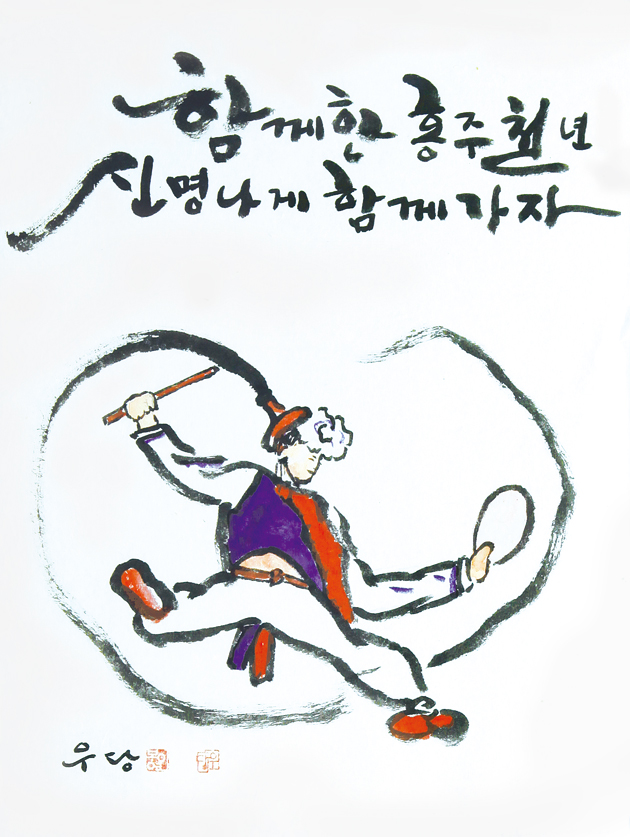 함께한 홍주천년
신명나게 함께가자
우당